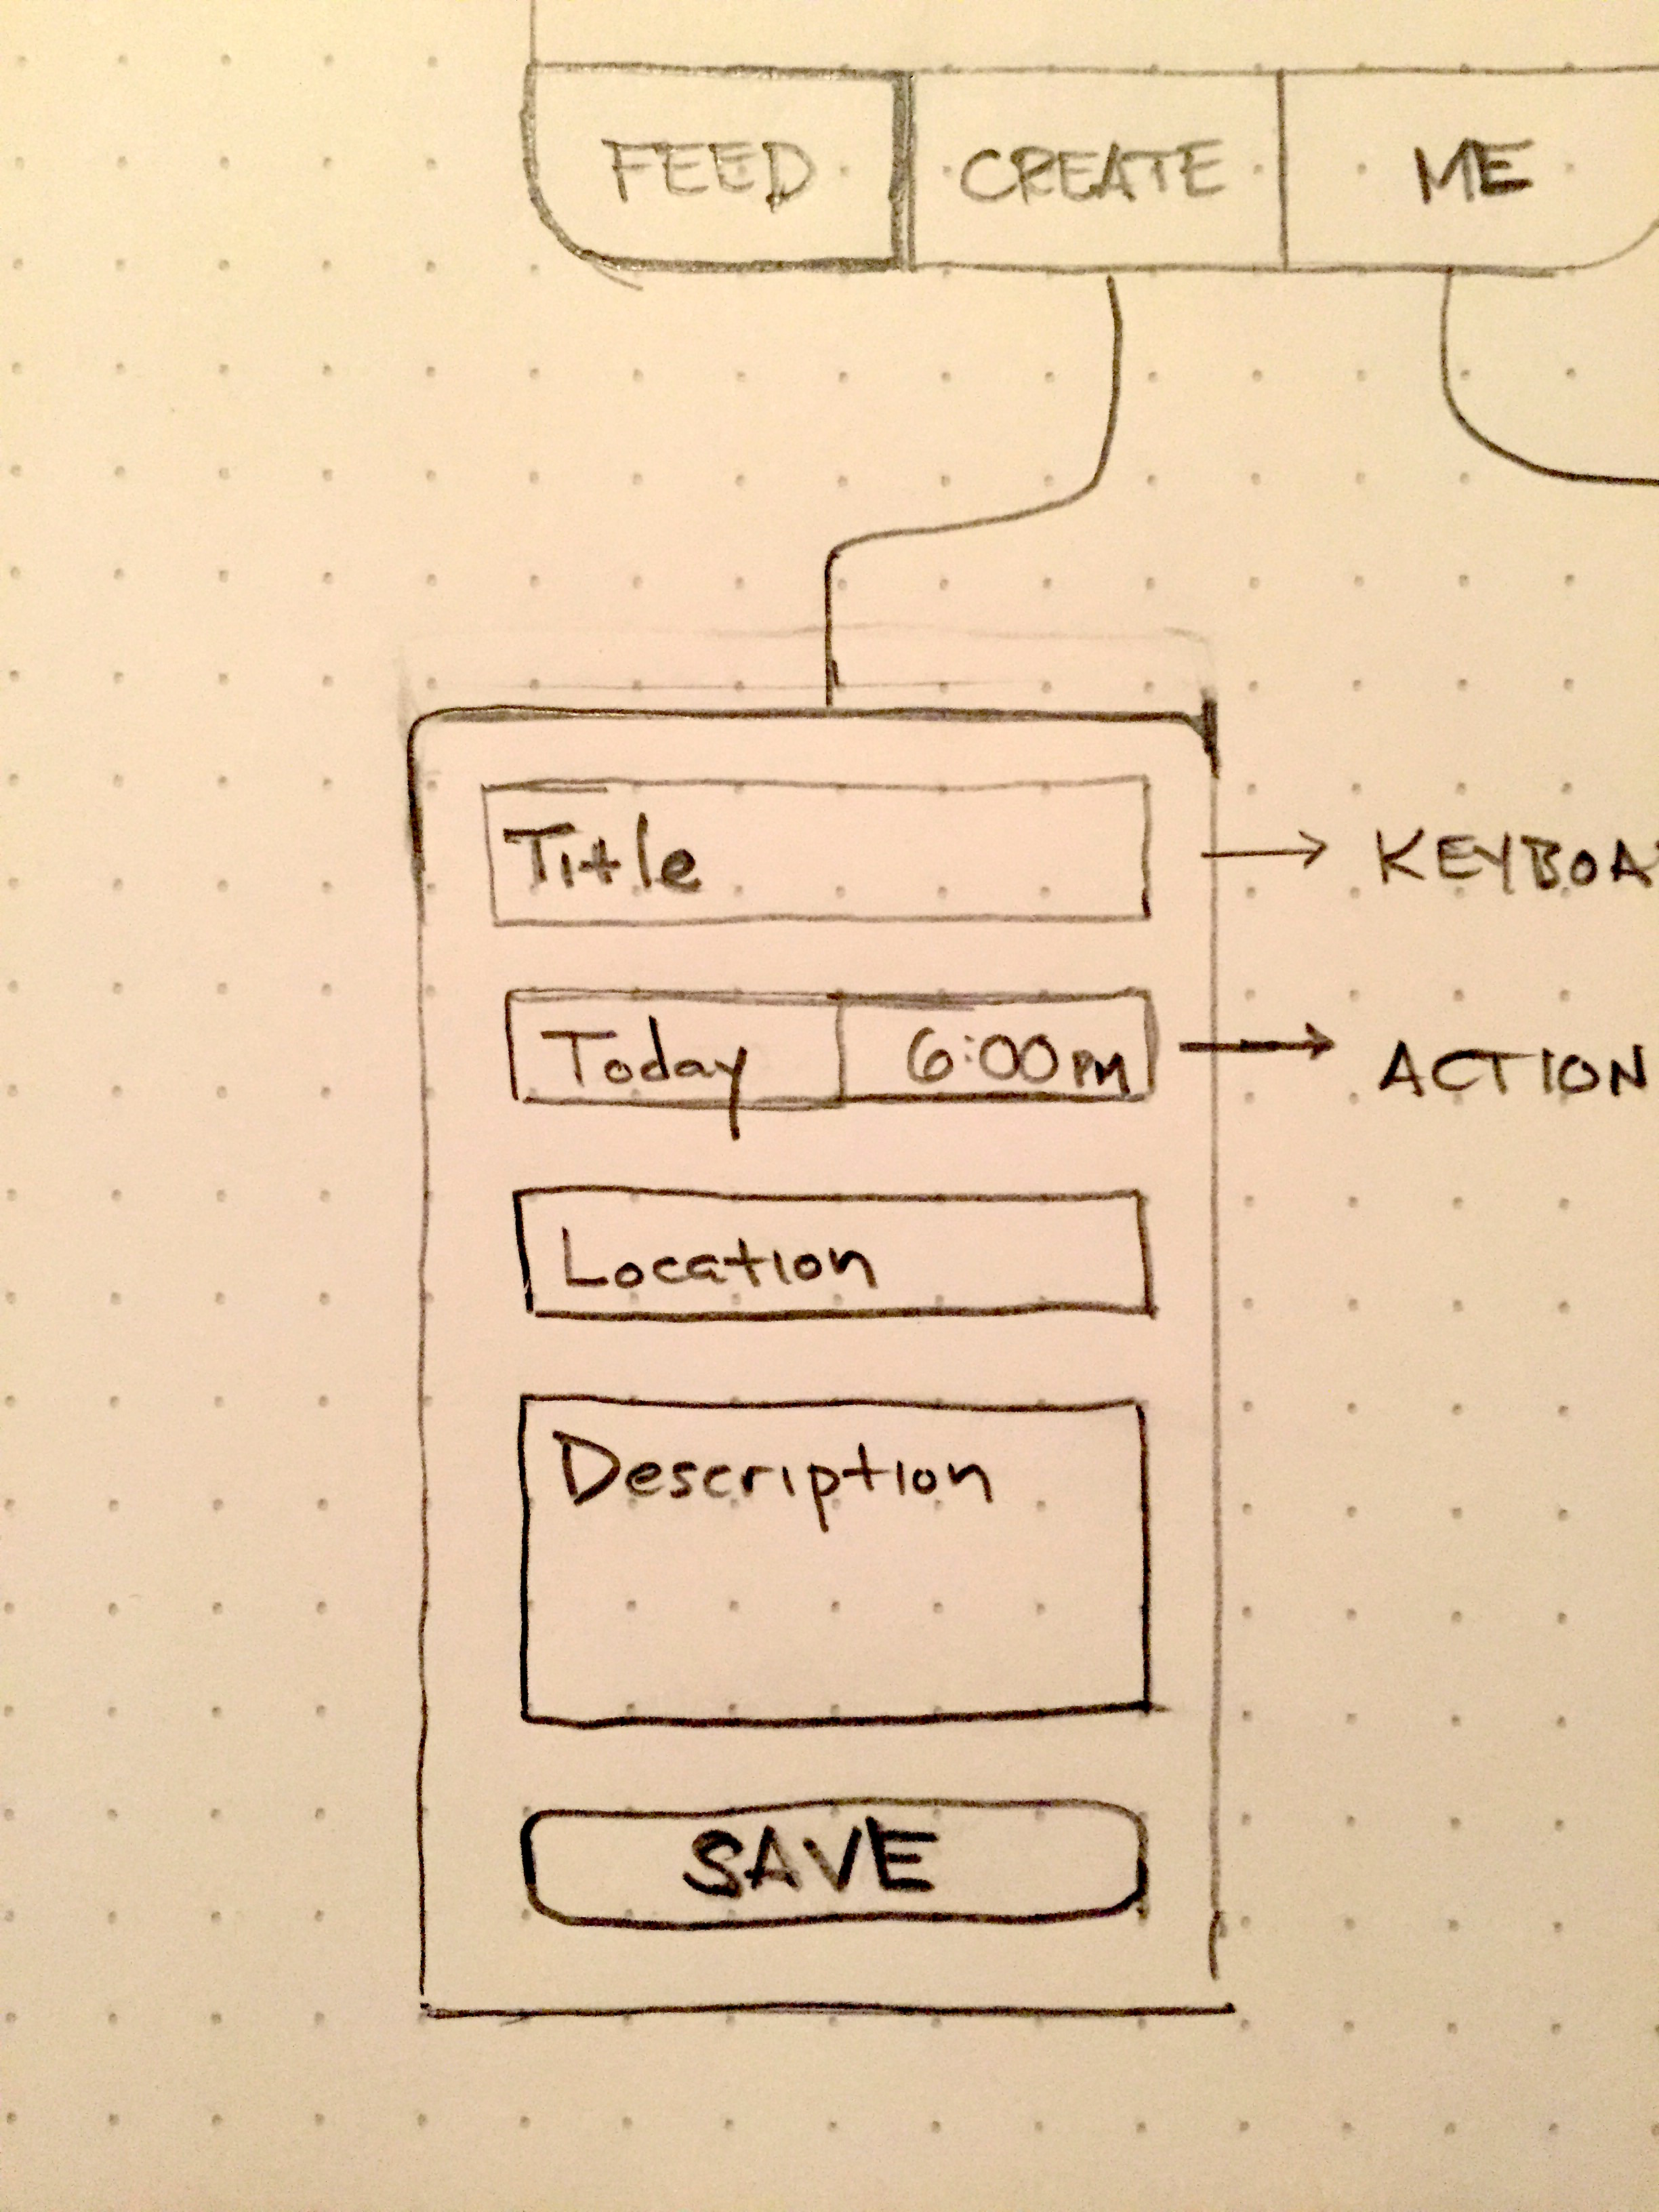 FEED CREATE ME
Title → KEYBOA
Today 6:00PM → ACTION
Location
Description
SAVE